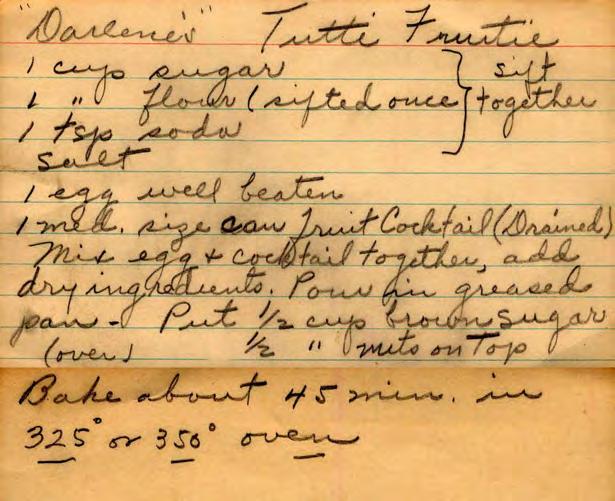 "Darlene's" Tutti Fruitie
1 cup sugar } sift
1 " flour (sifted once } together
1 tsp soda
salt
1 egg well beaten
1 med. size can fruit Cocktail (Drained)
Mix egg & cocktail together, add
dry ingredients. Pour in greased
pan - Put 1/2 cup brown sugar
(over) 1/2 " nuts on top
Bake about 45 min. in
325° or 350° oven